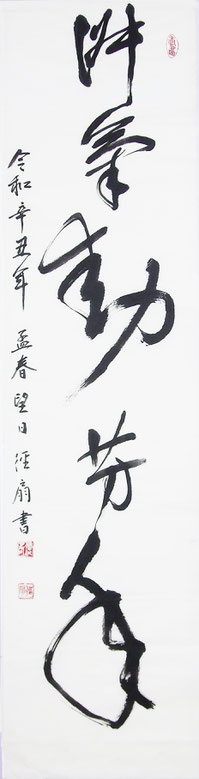 淑氣動芳年
令和辛丑年 孟春望日 徑扇書